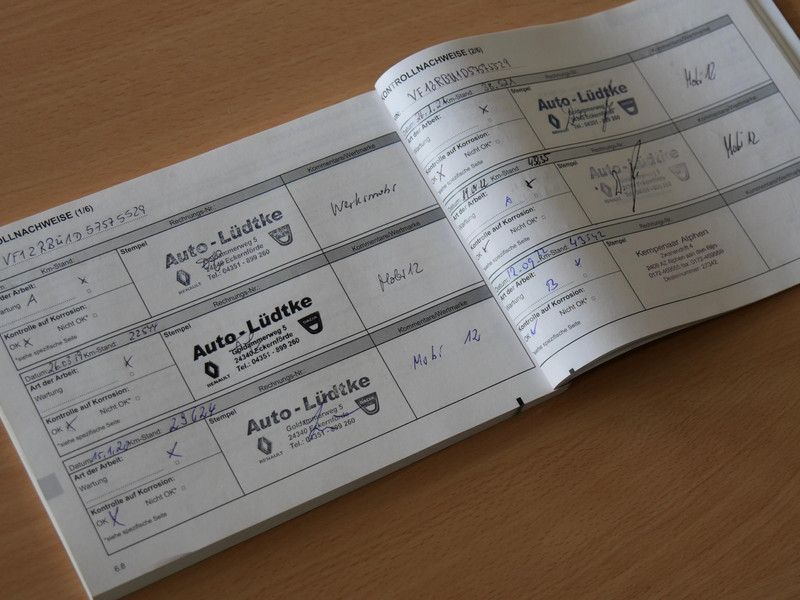 OLLNACHWEISE (1/6)
VF12RBU1D57575529
Km-Stand:
Rechnungs-Nr.:
Kommentare/Wertmarke
Art der Arbeit:
Wartung A
Stempel
Auto-Lüdtke
Goldammerweg 5
24340 Eckernförde
Tel.: 04351 - 899 260
RENAULT
DACIA
Werksmobi
Kontrolle auf Korrosion:
OK X Nicht OK*
*siehe spezifische Seite
Datum: 26.03.19 Km-Stand: 22544
Rechnungs-Nr.:
Kommentare/Wertmarke
Art der Arbeit:
Wartung
Stempel
Auto-Lüdtke
Goldammerweg 5
24340 Eckernförde
Tel.: 04351 - 899 260
RENAULT
DACIA
Mobi 12
Kontrolle auf Korrosion:
OK X Nicht OK*
*siehe spezifische Seite
Datum: 15.1.20 Km-Stand: 29624
Rechnungs-Nr.:
Kommentare/Wertmarke
Art der Arbeit:
Wartung
Stempel
Auto-Lüdtke
Goldammerweg 5
24340 Eckernförde
Tel.: 04351 - 899 260
RENAULT
DACIA
Mobi 12
Kontrolle auf Korrosion:
OK X Nicht OK*
*siehe spezifische Seite
6.8
KONTROLLNACHWEISE (2/6)
VF12RBU1D57575529
Datum: 26.1.21 Km-Stand:
Rechnungs-Nr.:
Art der Arbeit:
Wartung
Stempel
Auto-Lüdtke
Tel.: 04351 - 899 260
Mobi 12
Kontrolle auf Korrosion:
OK X Nicht OK*
*siehe spezifische Seite
Datum: Km-Stand:
Rechnungs-Nr.:
Kommentare/Wertmarke
Art der Arbeit:
Wartung A
Stempel
Auto-Lüdtke
Mobi 12
Kontrolle auf Korrosion:
OK Nicht OK*
*siehe spezifische Seite
Datum: 12.09.22 Km-Stand: 43542
Rechnungs-Nr.:
Kommentare/Wertmarke
Art der Arbeit:
Wartung B
Stempel
Kempenaar Alphen
Kontrolle auf Korrosion:
OK Nicht OK*
*siehe spezifische Seite